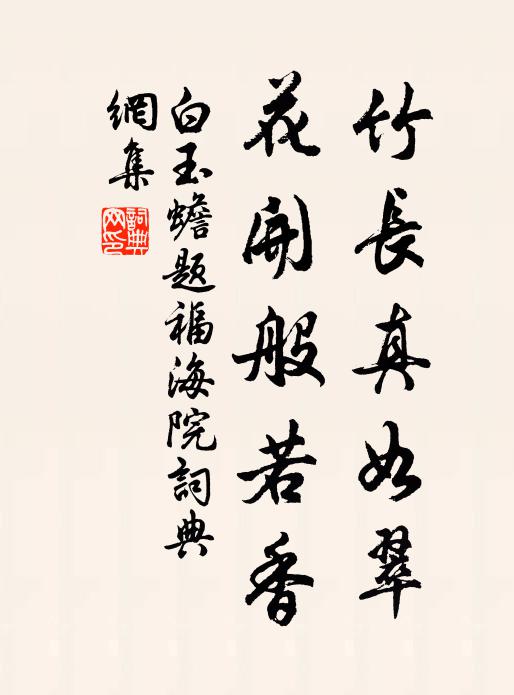 竹長真如翠
花開般若香
白玉蟾題福海院詞典
網集
詞典網印